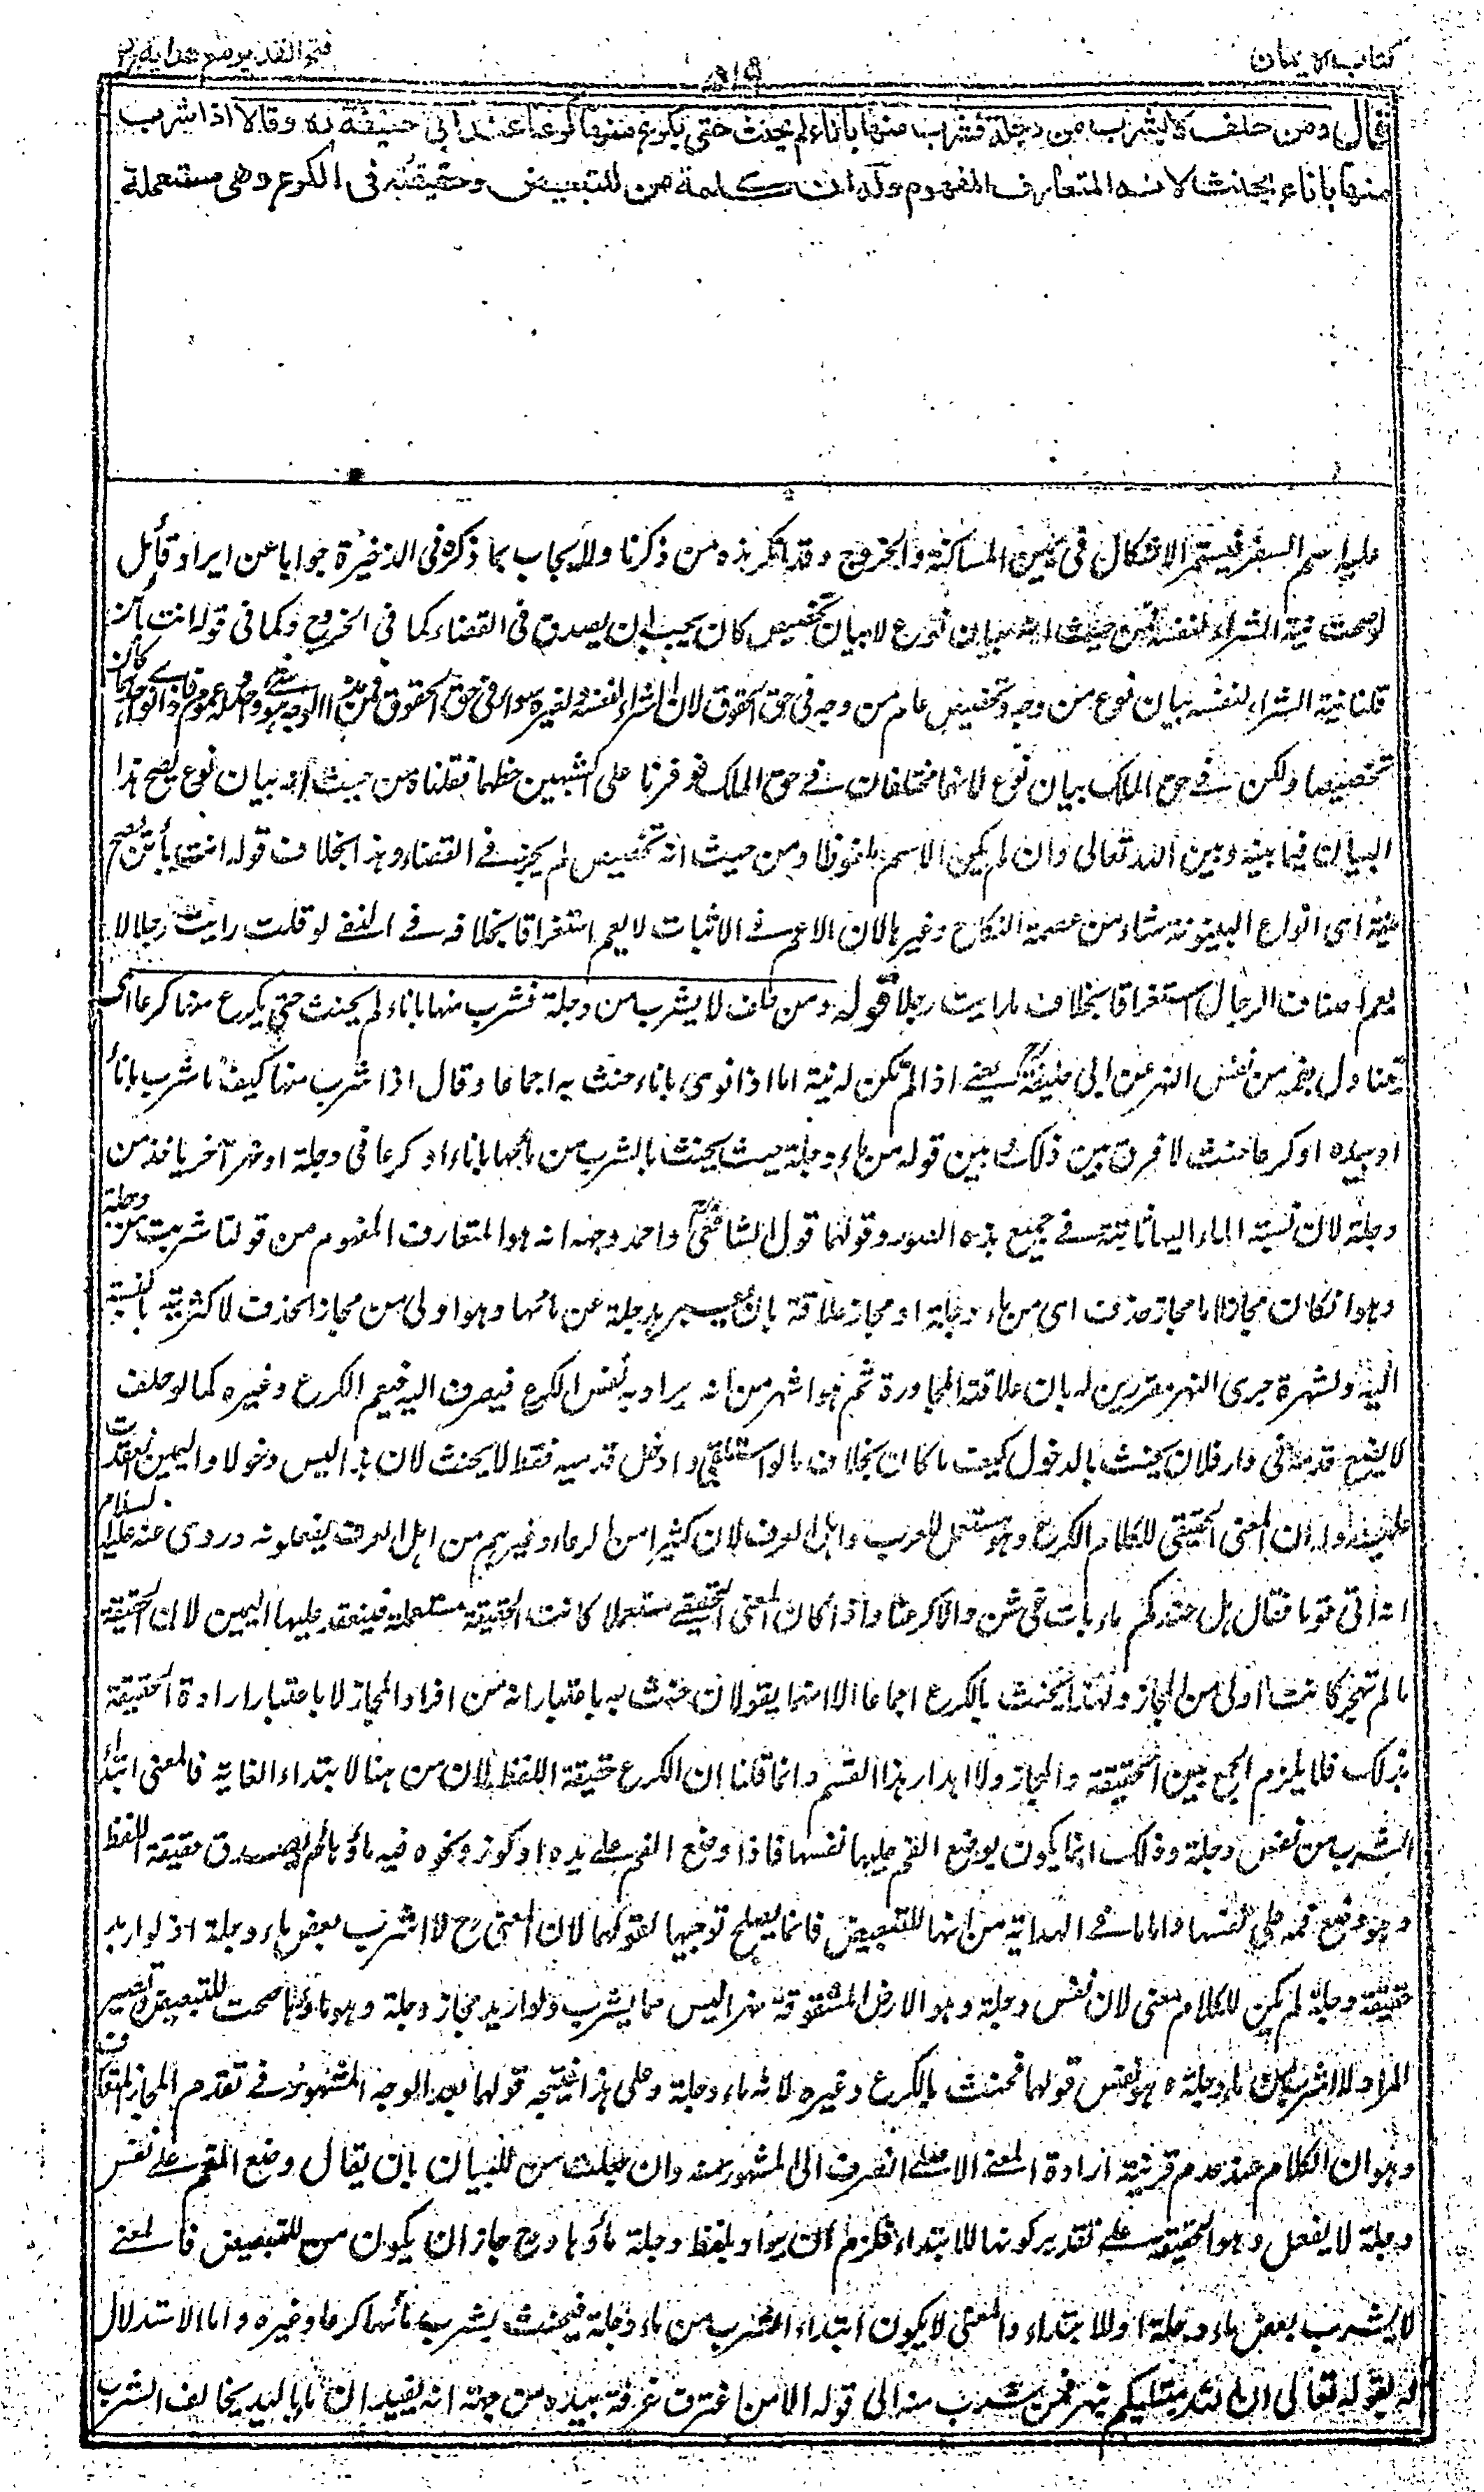 كتاب الايمان
۵۱۹
فتح القدير مع هدايه ج ٢
قال ومن حلف لا يشرب من دجلة فشرب منها باناء لم يحنث حتى يكرع منها كرعا عند ابى حنيفة ره وقالا اذا شرب
منها باناء يحنث لانه المتعارف المفهوم وله ان كلمة من للتبعيض وحقيقته فى الكرع وهى مستعملة
عليه اسم السفر فيستمر الاشكال فى يمين المساكنة والخروج وقد انكر هذه من ذكرنا ولا يجاب بما ذكره فى الذخيرة جوابا عن ايراد قائل
لو صحت نية الشراء لنفسه من حيث انه بيان نوع لا بيان تخصيص كان يجب ان يصدق فى القضاء كما فى الخروج وكما فى قوله انت بائن
قلنا نية الشراء لنفسه بيان نوع من وجه وتخصيص عام من وجه فى حق الحقوق لان الشراء لنفسه ولغيره سواء فى حق الحقوق فمن هذا الوجه هو عموم فاذا نوى احدهما كان
تخصيصا ولكن فى حق الملك بيان نوع لانهما مختلفان فى حق الملك فوفرنا على الشبهين حظهما فقلنا من حيث انه بيان نوع يصح هذا
البيان فيما بينه وبين الله تعالى وان لم يكن الاسم ملفوظا ومن حيث انه تخصيص لم يجز فى القضاء وهذا بخلاف قوله انت بائن تصح
نية اى انواع البينونة شاء من عصمة النكاح وغيرها لان الاعم فى الاثبات لا يعم استغراقا بخلافه فى النفى لو قلت رايت رجلا لا
يعم اصناف الرجال استغراقا بخلاف ما رايت رجلا قوله ومن حلف لا يشرب من دجلة فشرب منها باناء لم يحنث حتى يكرع منها كرعا اى
يتناول بفمه من نفس النهر عن ابى حنيفة رح يعنى اذا لم تكن له نية اما اذا نوى باناء حنث به اجماعا وقالا اذا شرب منها كيف ما شرب باناء
او بيده او كرعا حنث لا فرق بين ذلك وبين قوله من ماء دجلة حيث يحنث بالشرب من مائها باناء او كرعا فى دجلة او نهر آخر ياخذ من
دجلة لان نسبة الماء اليها ثابتة فى جميع هذه الصور وقولهما قول الشافعى رح واحمد وجه انه هو المتعارف المفهوم من قولنا شربت من دجلة
وهو ان كان مجازا اما مجاز حذف اى من ماء دجلة او مجاز علاقة بان يعبر بدجلة عن مائها وهو اولى من مجاز الحذف لاكثريته بالنسبة
اليه ولشهرة جرى النهر مقررين له بان علاقة المجاورة ثم هو اشهر من انه يراد به نفس الكرع فيصرف اليه فيعم الكرع وغيره كما لو حلف
لا يضع قدمه فى دار فلان يحنث بالدخول كيف ما كان بخلاف ما لو استلقى وادخل قدميه فقط لا يحنث لان هذا ليس دخولا واليمين انعقدت
عليه وله ان المعنى الحقيقى للكلام الكرع وهو مستعمل للعرب واهل العرف لان كثيرا من الرعاء وغيرهم من اهل العرف يفعلونه وروى عنه عليه السلام
انه اتى قوما فقال هل عندكم ماء بات فى شن والا كرعنا واذا كان المعنى الحقيقى مستعملا كانت الحقيقة مستعملة فينعقد عليها اليمين لان الحقيقة
ما لم تهجر كانت اولى من المجاز ولهذا يحنث بالكرع اجماعا الا انهما يقولان حنث به باعتبار انه من افراد المجاز لا باعتبار ارادة الحقيقة
بذلك فلا يلزم الجمع بين الحقيقة والمجاز ولا اهدار هذا القسم وانما قلنا ان الكرع حقيقة اللفظ لان من هنا لابتداء الغاية فالمعنى ابتداء
الشرب من نفس دجلة وذلك انما يكون بوضع الفم عليها نفسها فاذا وضع الفم على يده او كوز ونحوه فيه ماؤها لم يصدق حقيقة اللفظ
وهو وضع فمه على نفسها واما ما فى الهداية من انها للتبعيض فانما يصلح توجيها لقولهما لان المعنى ح لا اشرب بعض ماء دجلة اذ لو اريد
حقيقة دجلة لم يكن للكلام معنى لان نفس دجلة وهو الارض المشقوقة نهرا ليس مما يشرب ولو اريد مجاز دجلة وهو ماؤها صحت للتبعيض ويصير
المراد لا اشرب من ماء دجلة وهو نفس قولهما فحنث بالكرع وغيره لانه ماء دجلة وعلى هذا فيتجه قولهما بعد الوجه المشهور فى تقدم المجاز المتعارف
وهو ان الكلام عند عدم قرينة ارادة المعنى الاصلى انصرف الى المشهور منه وان جعلت من للبيان بان يقال وضع الفم على نفس
دجلة لا يفعل وهو الحقيقة على تقدير كونها للابتداء فلزم ان يراد بلفظ دجلة ماؤها وح جاز ان يكون من للتبعيض فالمعنى
لا يشرب بعض ماء دجلة او للابتداء والمعنى لا يكون ابتداء الشرب من ماء دجلة فيحنث بشرب مائها كرعا وغيره واما الاستدلال
له بقوله تعالى ان الله مبتليكم بنهر فمن شرب منه الى قوله الا من اغترف غرفة بيده من جهة انه يفيد ان ما باليد يخالف الشرب